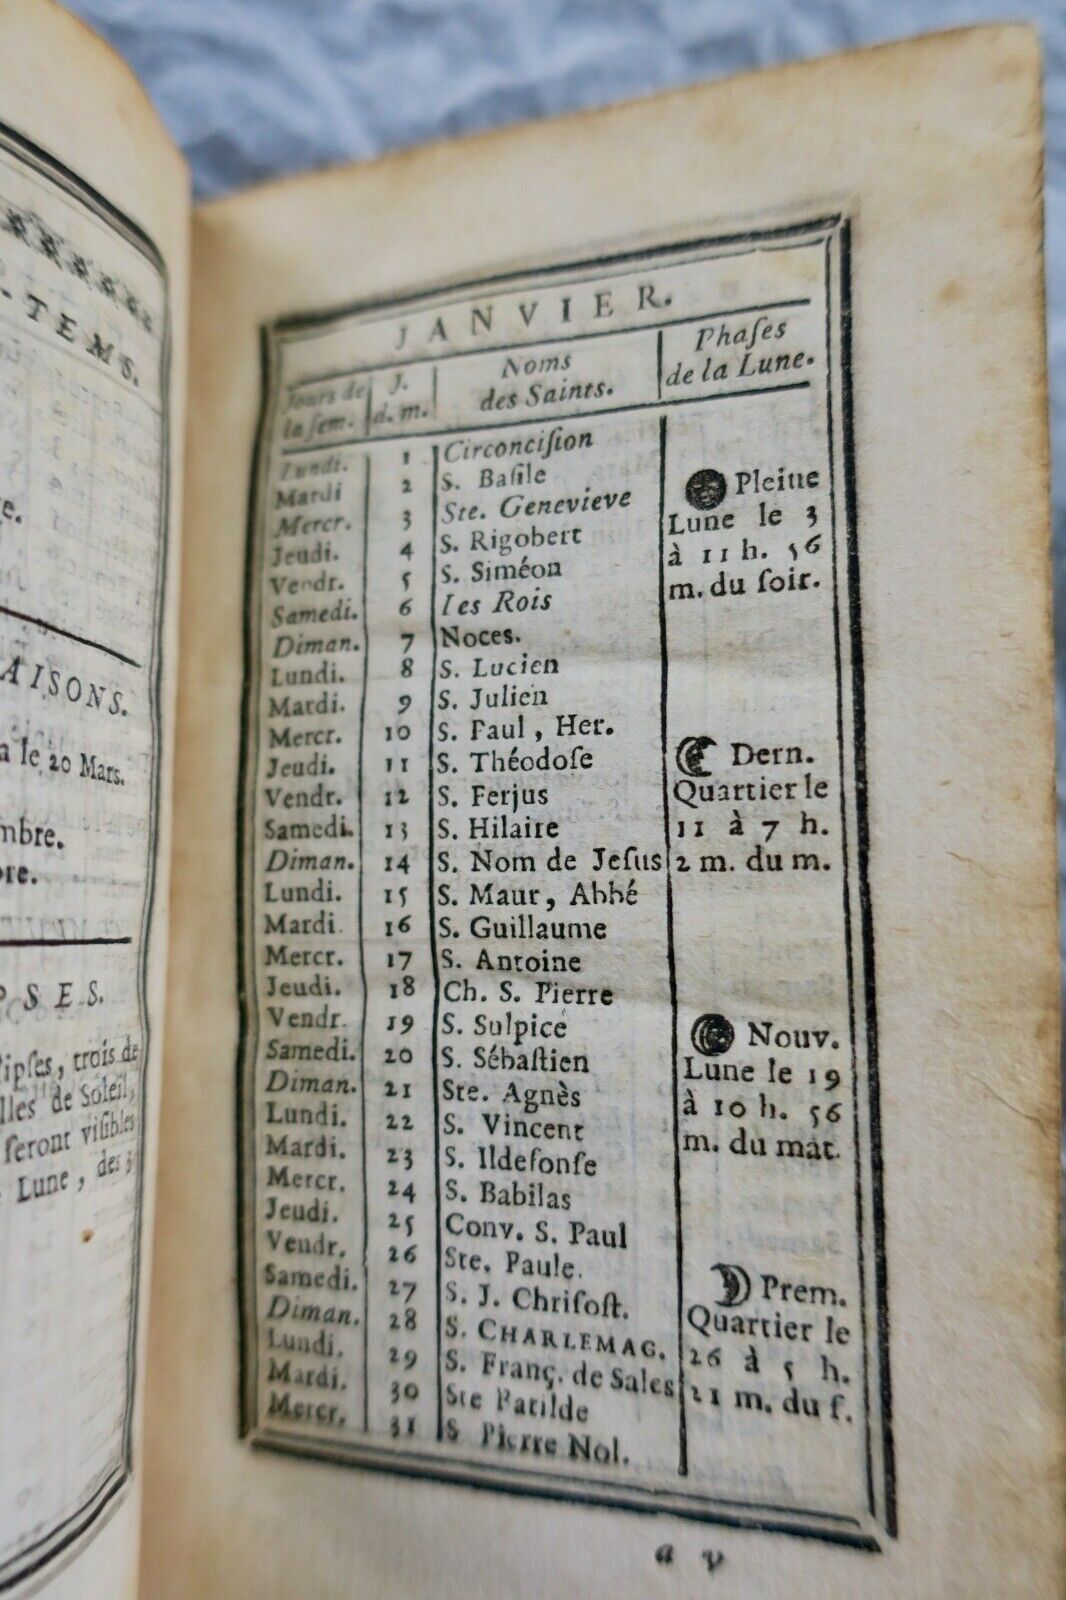 -TEMS.
e.
AISONS.
a le 20 Mars.
mbre.
bre.
PSES.
lipſes, trois de
lles de Soleil,
ſeront viſibles
Lune, des
JANVIER.
Jours de la ſem. J. d. m. Noms des Saints. Phaſes de la Lune.
Lundi. 1 Circonciſion
Mardi 2 S. Baſile
Mercr. 3 Ste. Genevieve
Jeudi. 4 S. Rigobert
Vendr. 5 S. Siméon
Samedi. 6 les Rois
Diman. 7 Noces.
Lundi. 8 S. Lucien
Mardi. 9 S. Julien
Mercr. 10 S. Paul, Her.
Jeudi. 11 S. Théodoſe
Vendr. 12 S. Ferjus
Samedi. 13 S. Hilaire
Diman. 14 S. Nom de Jeſus
Lundi. 15 S. Maur, Abbé
Mardi. 16 S. Guillaume
Mercr. 17 S. Antoine
Jeudi. 18 Ch. S. Pierre
Vendr. 19 S. Sulpice
Samedi. 20 S. Sébaſtien
Diman. 21 Ste. Agnès
Lundi. 22 S. Vincent
Mardi. 23 S. Ildefonſe
Mercr. 24 S. Babilas
Jeudi. 25 Conv. S. Paul
Vendr. 26 Ste. Paule.
Samedi. 27 S. J. Chriſoſt.
Diman. 28 S. CHARLEMAG.
Lundi. 29 S. Franç. de Sales
Mardi. 30 Ste Batilde
Mercr. 31 S Pierre Nol.
Pleine
Lune le 3
à 11 h. 56
m. du ſoir.
Dern.
Quartier le
11 à 7 h.
2 m. du m.
Nouv.
Lune le 19
à 10 h. 56
m. du mat.
Prem.
Quartier le
26 à 5 h.
21 m. du ſ.
a v